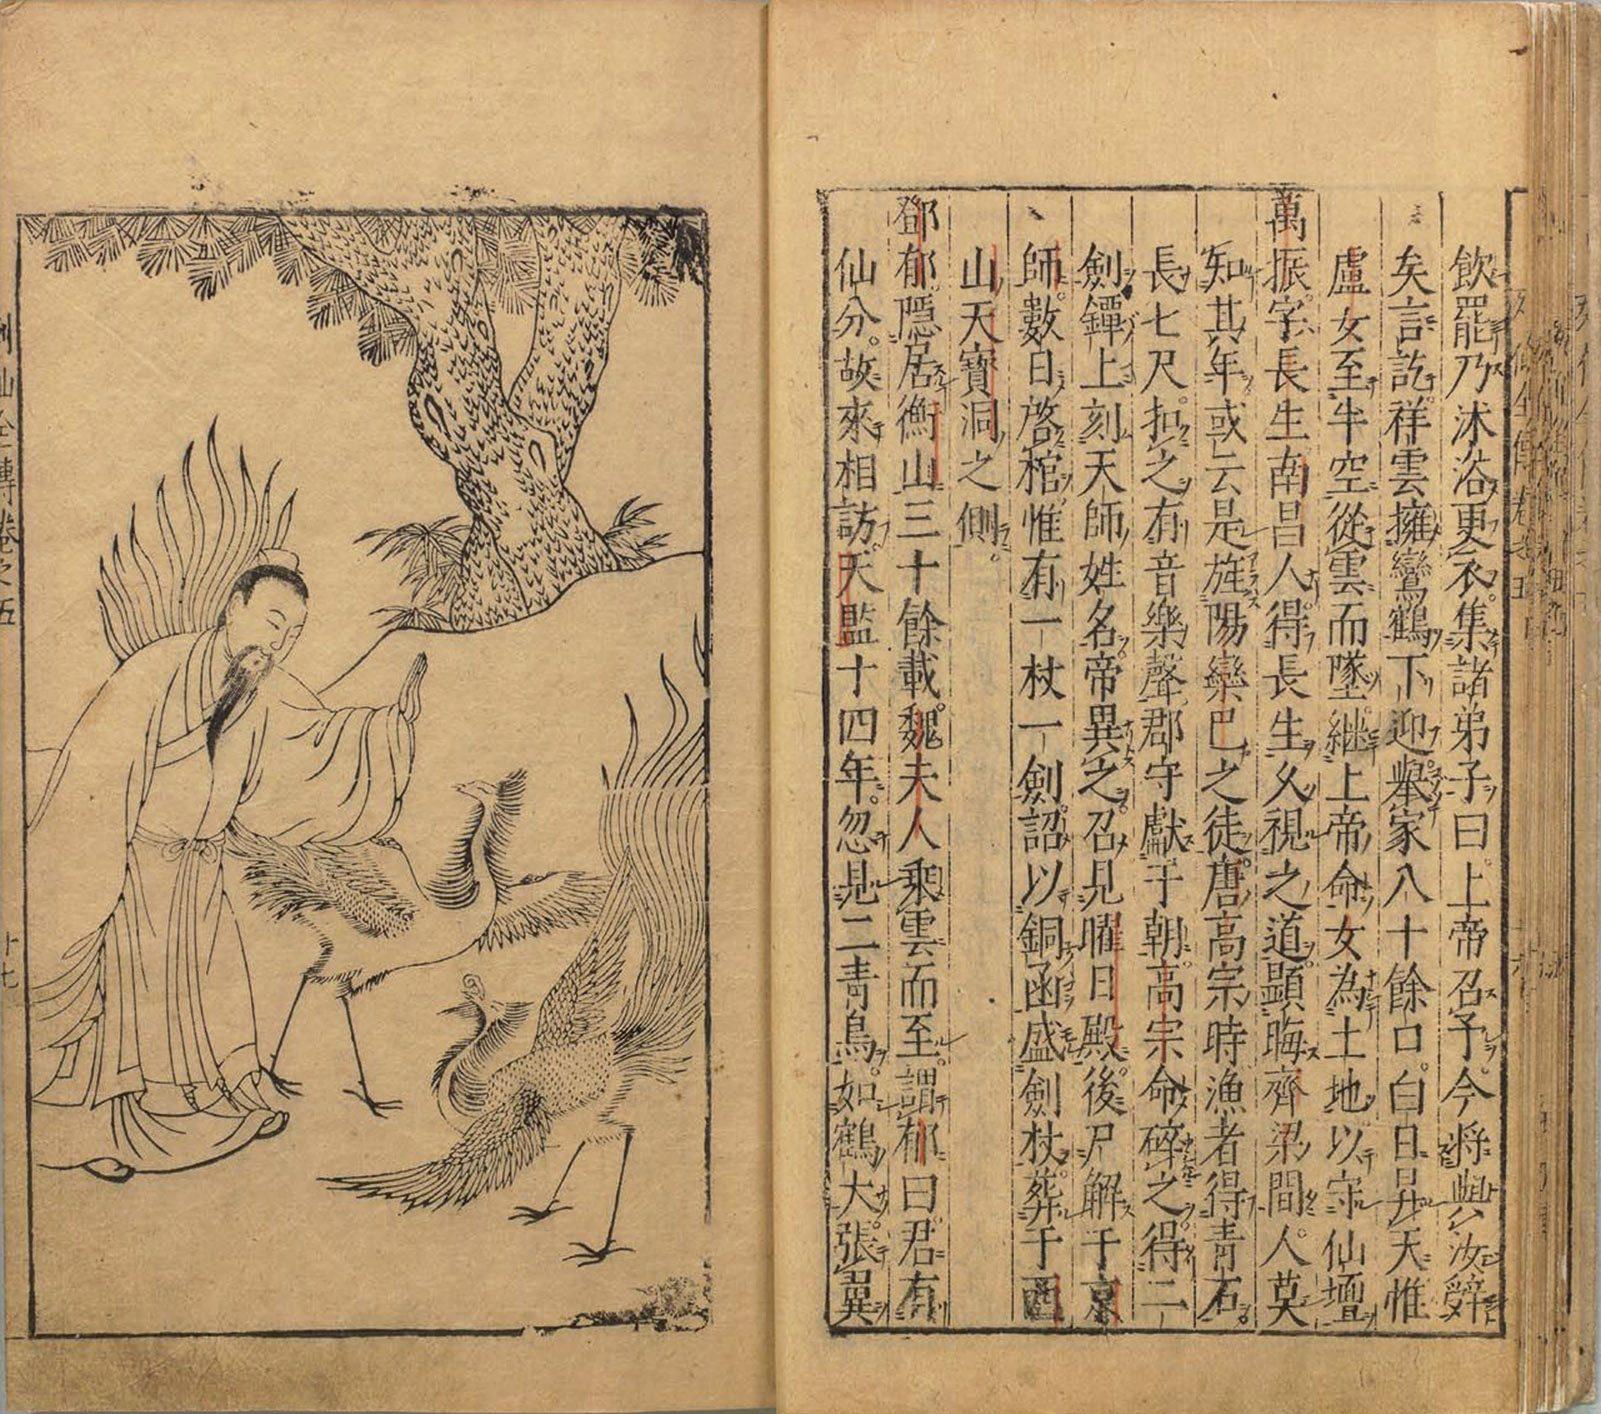 飲罷乃沐浴更衣集諸弟子曰上帝召予今將與汝辭
矣言訖祥雲擁鸞鶴下迎舉家八十餘口白日昇天惟
盧女至半空從雲而墜繼上帝命女為土地以守仙壇
萬振字長生南昌人得長生久視之道顯晦齊梁間人莫
知其年或云是旌陽欒巴之徒唐高宗時漁者得青石
長七尺扣之有音樂聲郡守獻于朝高宗命碎之得二
劍鐔上刻天師姓名帝異之召見曜日殿後尸解于京
師數日啓棺惟有一杖一劍詔以銅函盛劍杖葬于西
山天寶洞之側
鄧郁隱居衡山三十餘載魏夫人乘雲而至謂郁曰君有
仙分故來相訪天監十四年忽見二青鳥如鶴大張翼
列仙全傳卷之五
十七